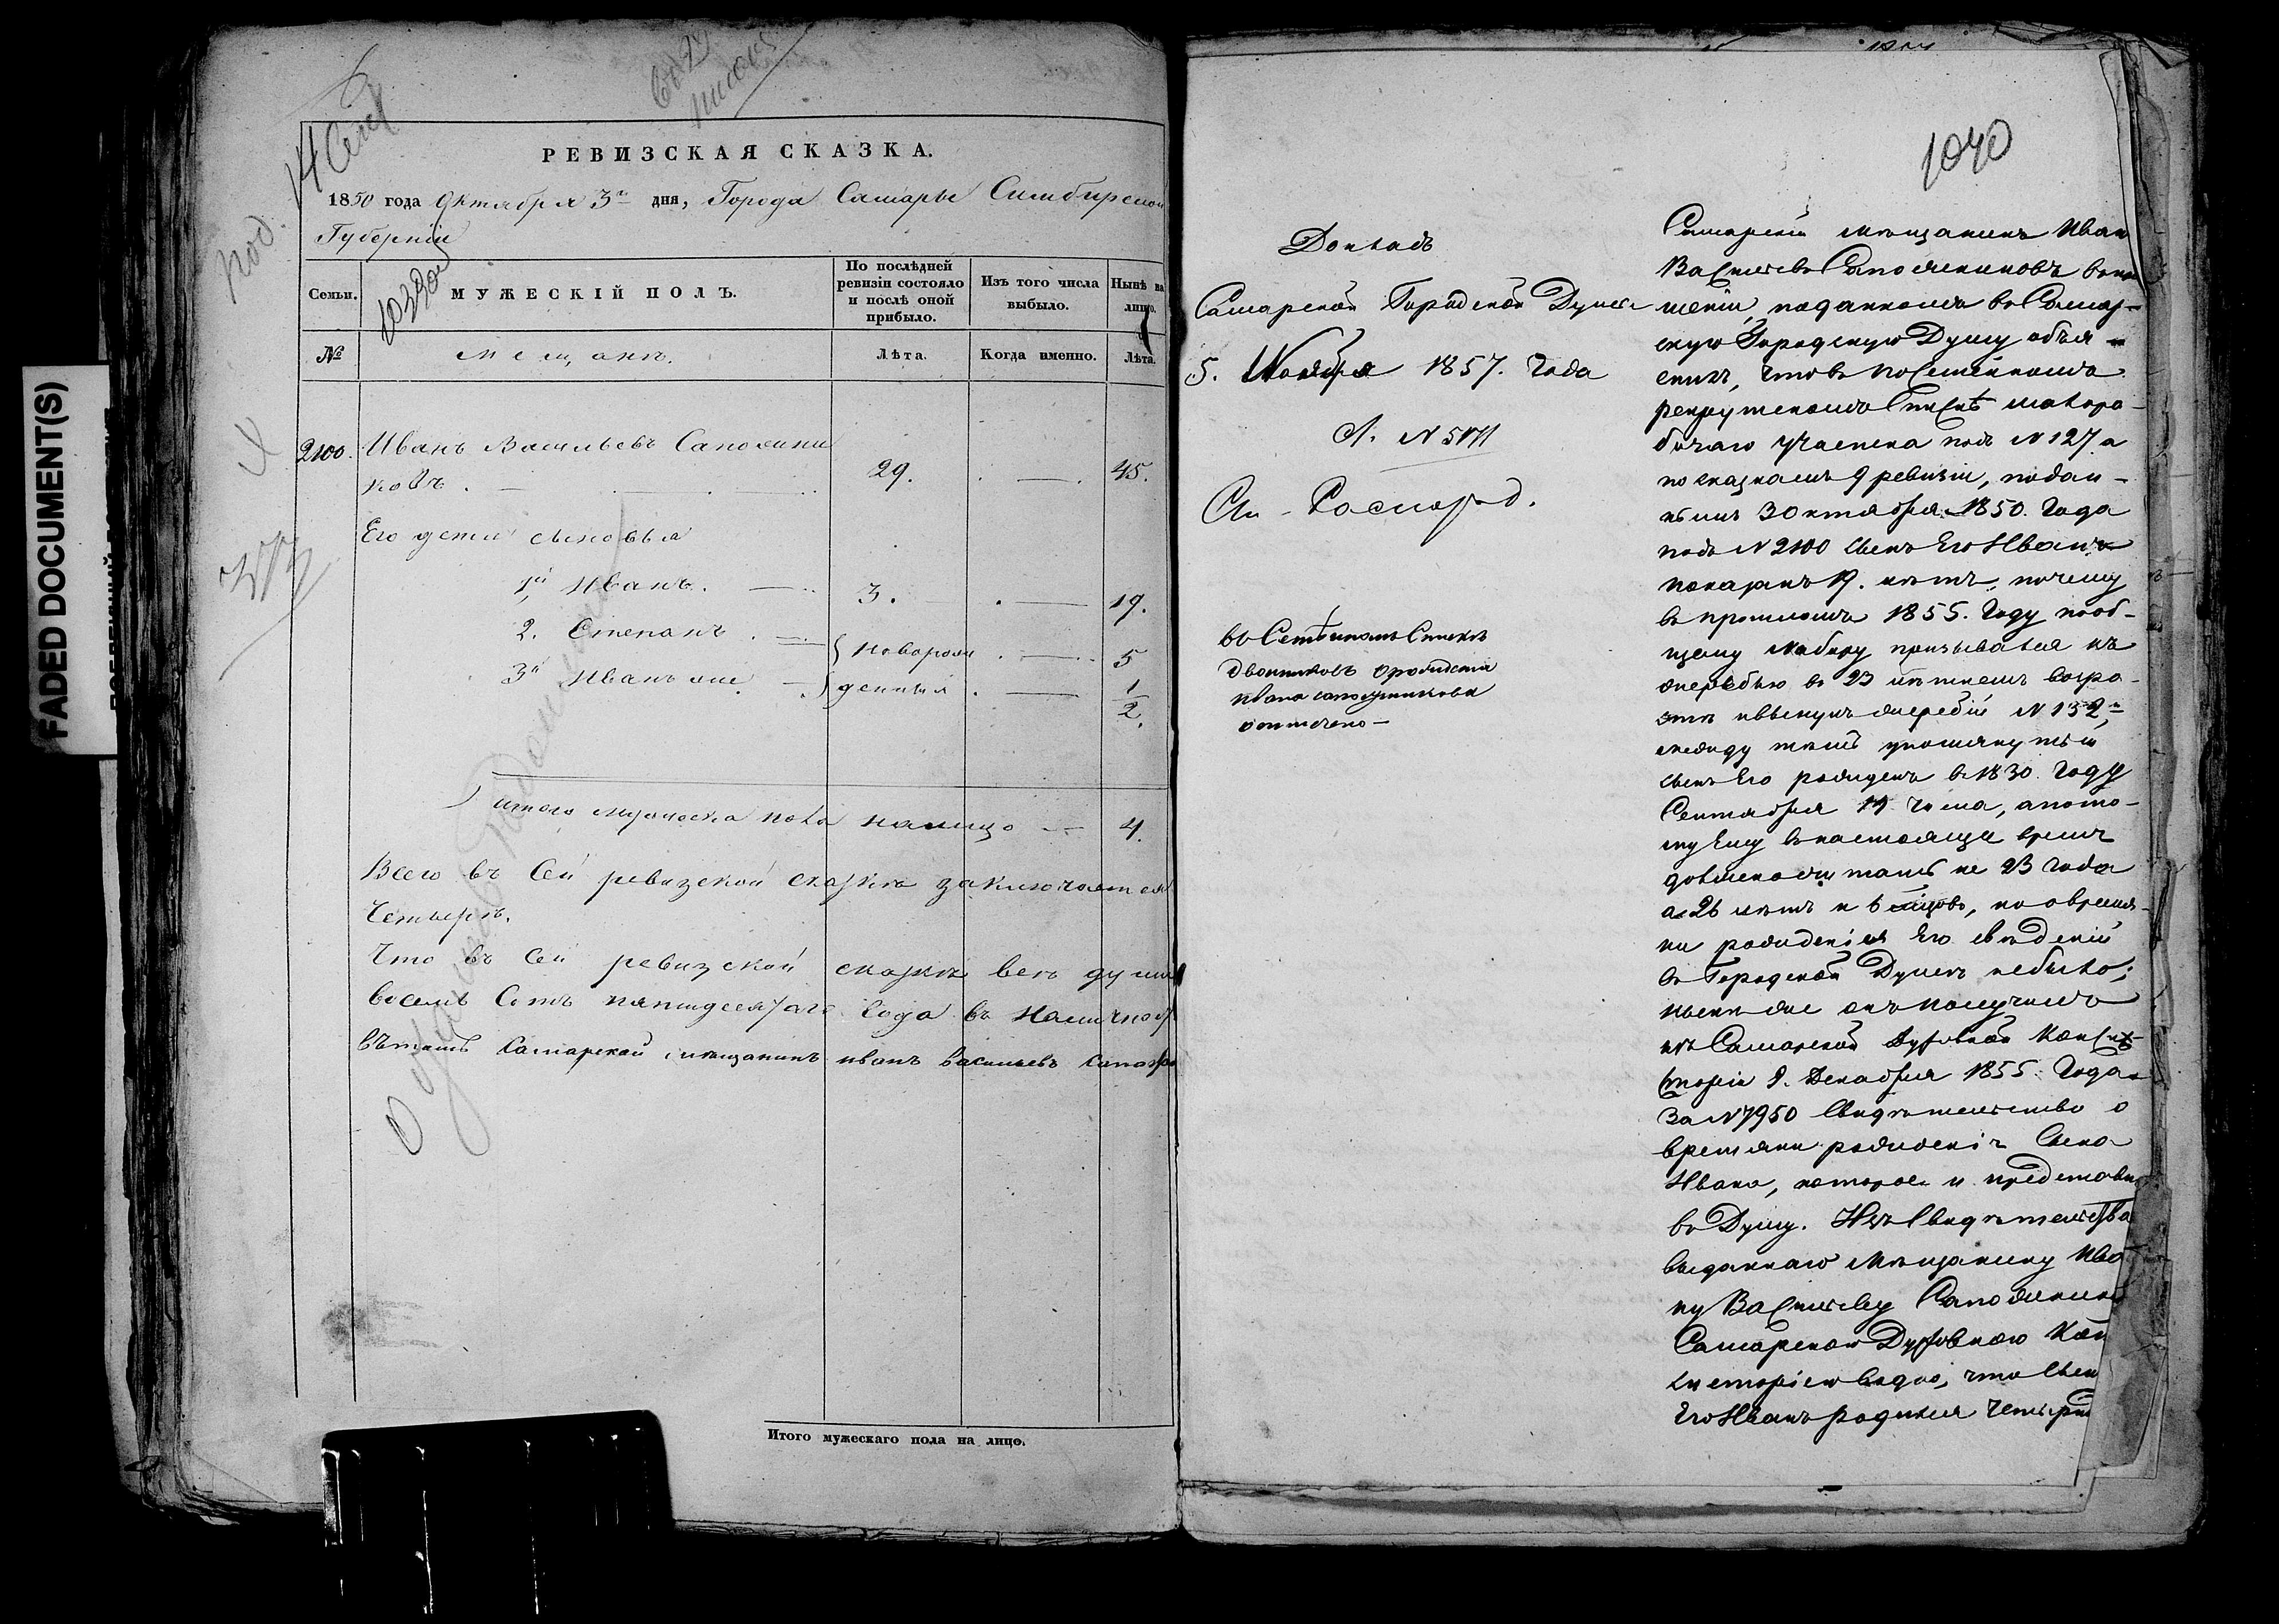 FADED DOCUMENT(S)
14 Сент
под.
РЕВИЗСКАЯ СКАЗКА.
1850 года Октября 3го дня, Города Самары Симбирской
Губерніи
Семьи.
МУЖЕСКІЙ ПОЛЪ.
По послѣдней
ревизіи состояло
и послѣ оной
прибыло.
Изъ того числа
выбыло.
Нынѣ на
лицо.
№
Мещанъ.
Лѣта.
Когда именно.
Лѣта.
2100. Иванъ Васильевъ Сапожни
ковъ. 29. 45.
Его дети сыновья
1й Иванъ. 3. 19.
2. Степанъ. новорож 5
3й Иванъ же денныя 1/2.
итого мужеска пола налицо — 4.
Всего въ сей ревизской сказкѣ заключается
Четыре.
Что въ сей ревизской сказкѣ всѣ души
восемь сотъ пятидесятаго года въ наличнос
въ томъ Самарской мѣщанинъ иванъ васильевъ сапож
Итого мужескаго пола на лицо.
1040
Докладъ
Самарской Городской Думы
5. Ноября 1857. Года
N 5171
Распоряд.
въ Семейномъ Спискѣ
двойниковъ о рождении
ивана сапожникова
отмечено —
Самарскій мѣщанинъ Иван
Васильевъ Сапожниковъ
шеніи, поданномъ въ Самар-
скую Городскую Думу объя-
снилъ, что въ посемейномъ
рекрутскомъ Спискѣ
участка подъ N 127 а
по сказкамъ 9 ревизіи, подан-
нымъ 3 октября 1850. Года
подъ N 2100 сынъ Его Иванъ
показанъ 19. лѣтъ, почему
въ прошломъ 1855. Году по об-
щему набору призывался къ
жеребью въ 23 лѣтнемъ возра-
стѣ и вынулъ жеребій N 132й,
между тѣмъ упомянутый
сынъ Его рожденъ въ 1830. Году
Сентября 14 числа, а пото-
му Ему в настояще время
должно считать не 23 года
а 26 лѣтъ и мѣсяцовъ, но о време-
ни рожденія Его свѣденій
въ Городской Думѣ небыло;
ныне же онъ получилъ
изъ Самарской Духовной Конси-
сторіи 9. Декабря 1855. Года
за N 7950 Свидѣтельство о
времяни рожденія Сына
Ивана, которое и представи
въ Думу. Изъ Свидѣтельства
выданнаго Мѣщанину Ива
ну Васильеву Сапожникову
Самарскою Духовною Кон
систоріею видно, что Сын
Его Иванъ родился Четыр